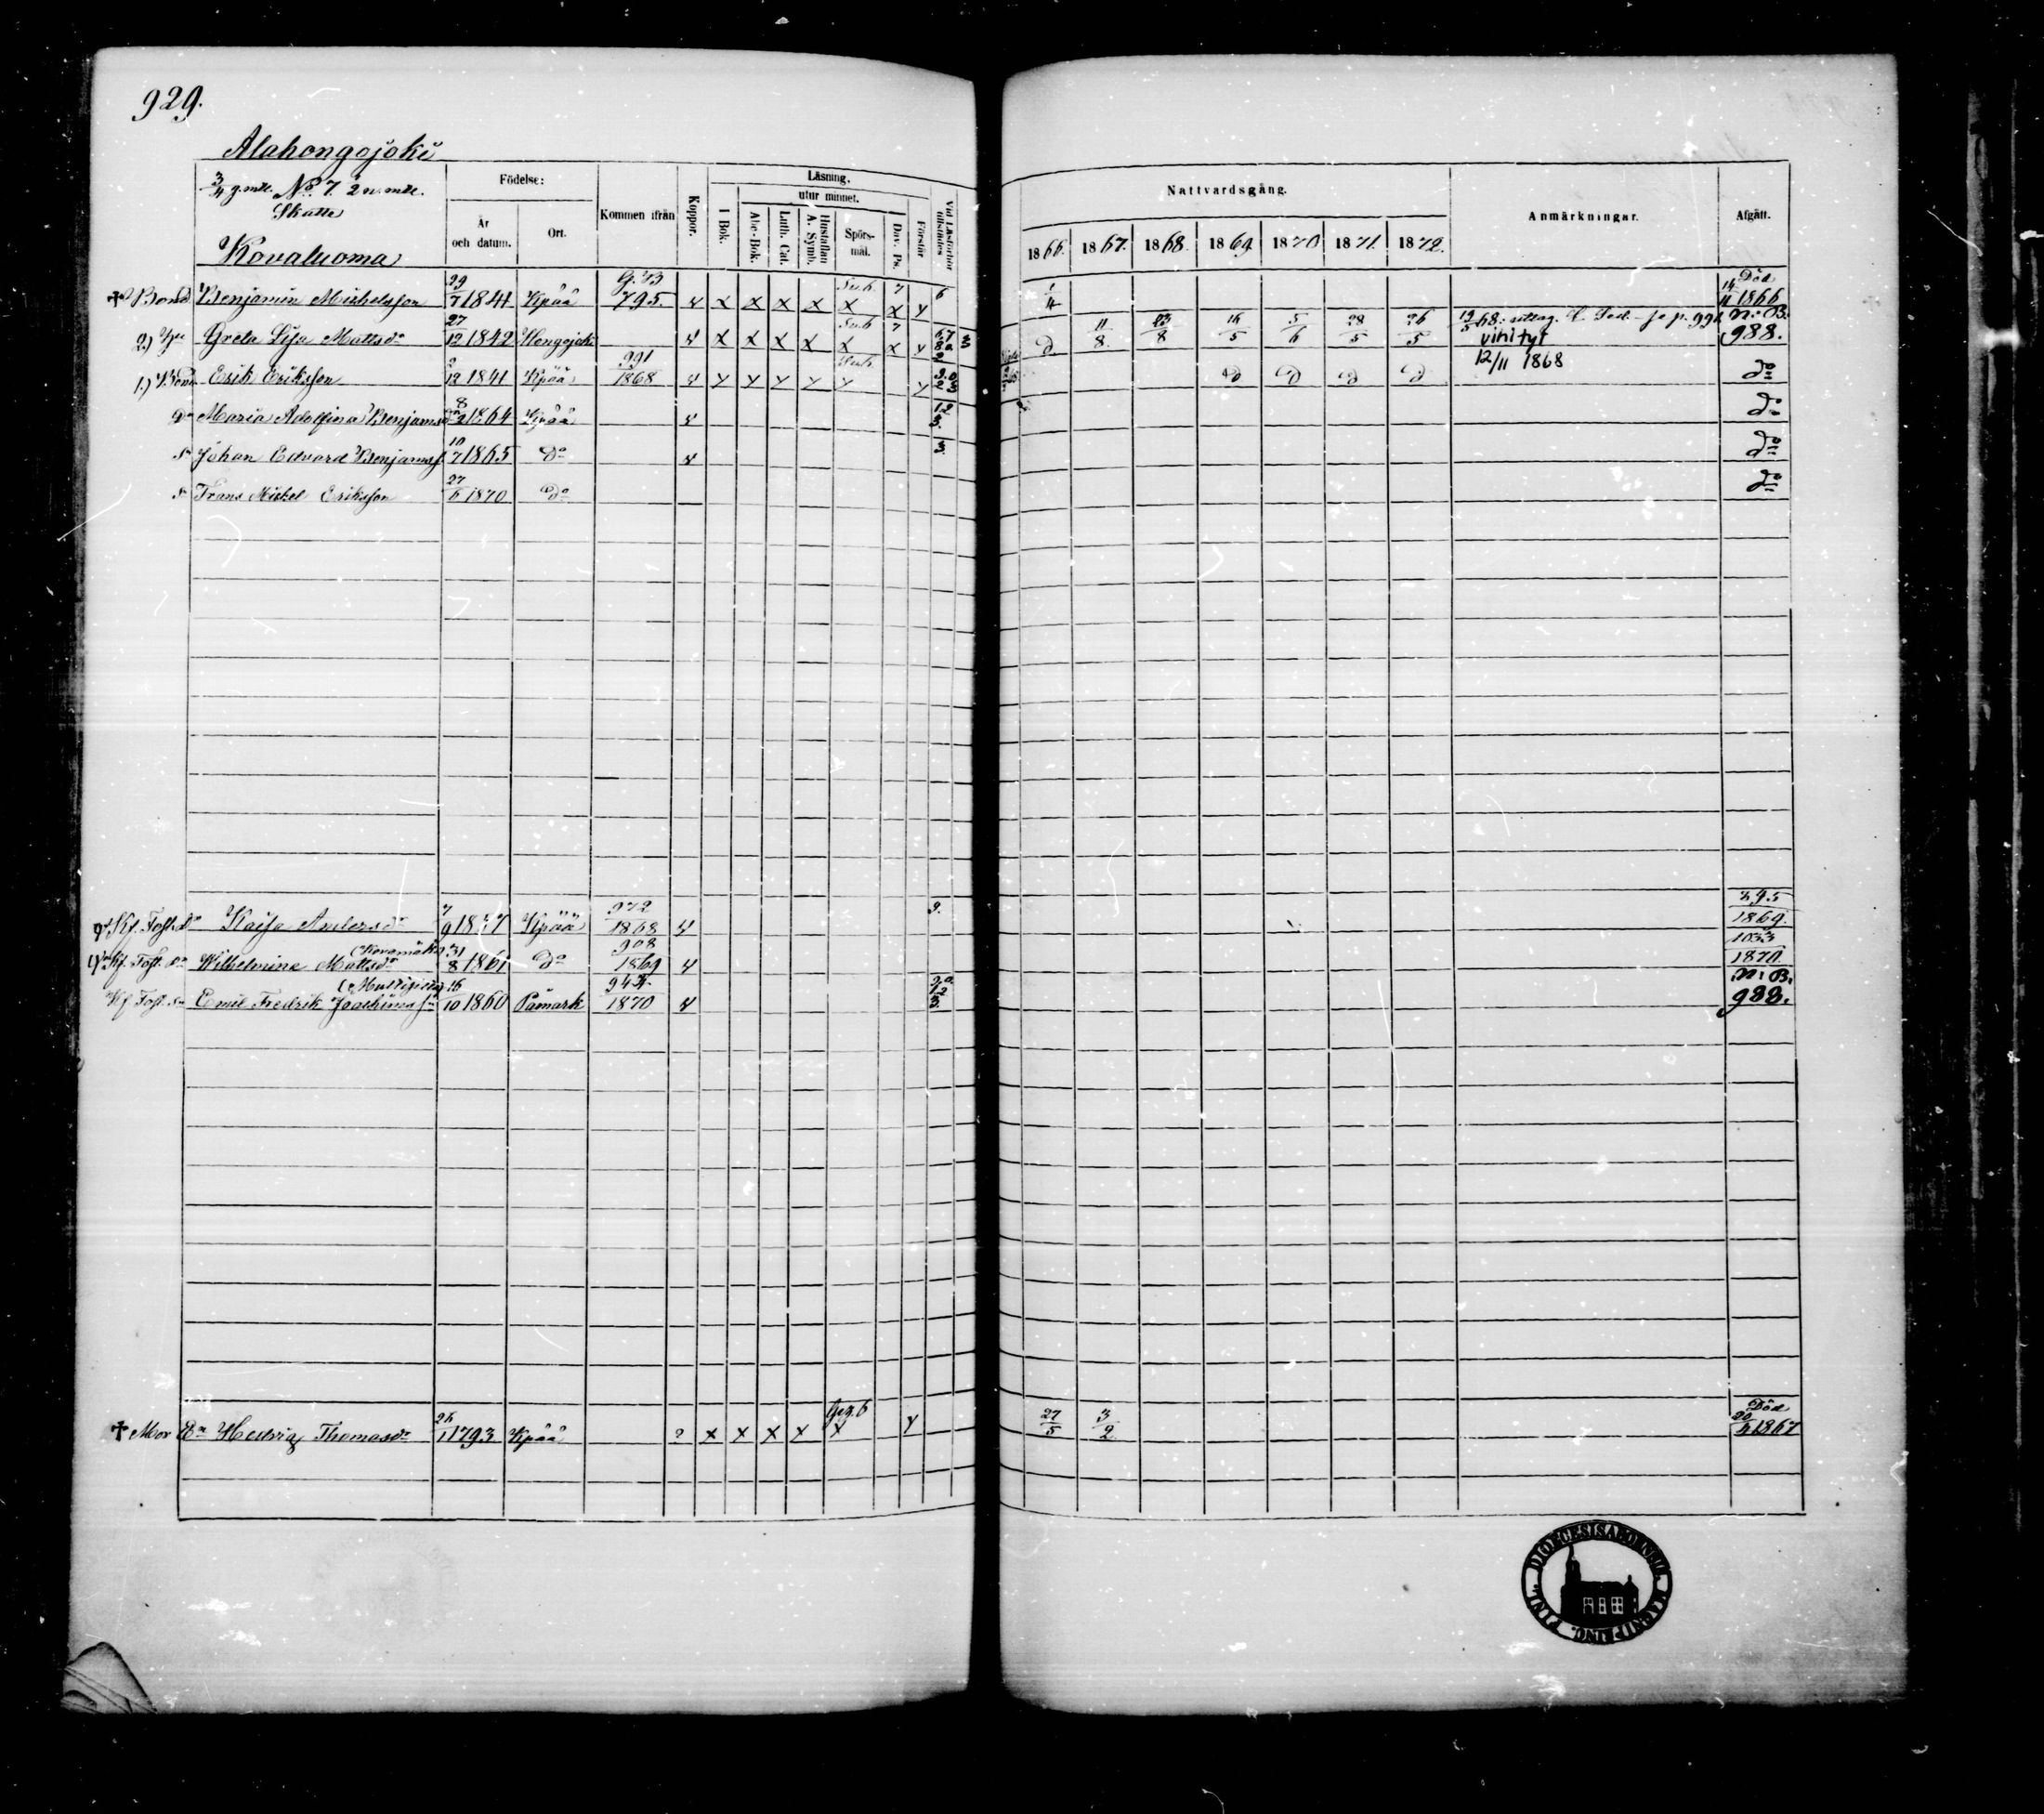 929.
Alahongojoki
3/4 g. mtl. No 7. 2 n. mtl.
Skatte
Kovaluoma
Födelse:
År och datum.
Ort.
Kommen ifrån
Koppor.
Läsning.
I Bok.
utur minnet.
Abc-Bok.
Luth. Cat.
Hustaflan A. Symb.
Spörs-mål.
Dav. Ps.
Förstår
Vid Läsförhör tillstädes
Nattvardsgång.
1866. 1867. 1868. 1869. 1870 1871. 1872.
Anmärkningar.
Afgått.
Bond Benjamin Michelsson 29/7 1841 Kpää G. B 795. x x x x x x y 6 1/4 Död 14/11 1866
2) Greta Lisa Mattsdr 27/12 1842 Hongojoki x x x x x x y D 11/8 23/8 16/5 5/6 28/5 26/5 19/5 68. p. 991 N: B. 988.
vihityt
12/11 1868
1.) Bond Erik Eriksson 2/12 1841 Kpää 991/1868 y y y y y y D D D D do
Dr Maria Adolfina Benjamsdr 8/2 1864 Kpää 12 3. do
Sn Johan Edvard Benjamss. 10/7 1865 Do 3. do
Sn Frans Mickel Eriksson 27/6 1870 Do do
Kf. Fostdr Kaisa Andersdr 7/9 1857 Kpää 972/1868 9. 395/1869.
Kf. Fost. dr Wilhelmina Mattsdr 31/8 1861 Do 908/1869 1033/1870
Kf Fost. sn Emil Fredrik Joachimssn 16/10 1860 Påmark 944/1870 N: B. 988.
Mor En Hedvig Thomasdr 26/1 1793 Kpää ? x x x x x y 27/5 3/2 Död 20/4 1867
DIOECESIS ABOENSIS